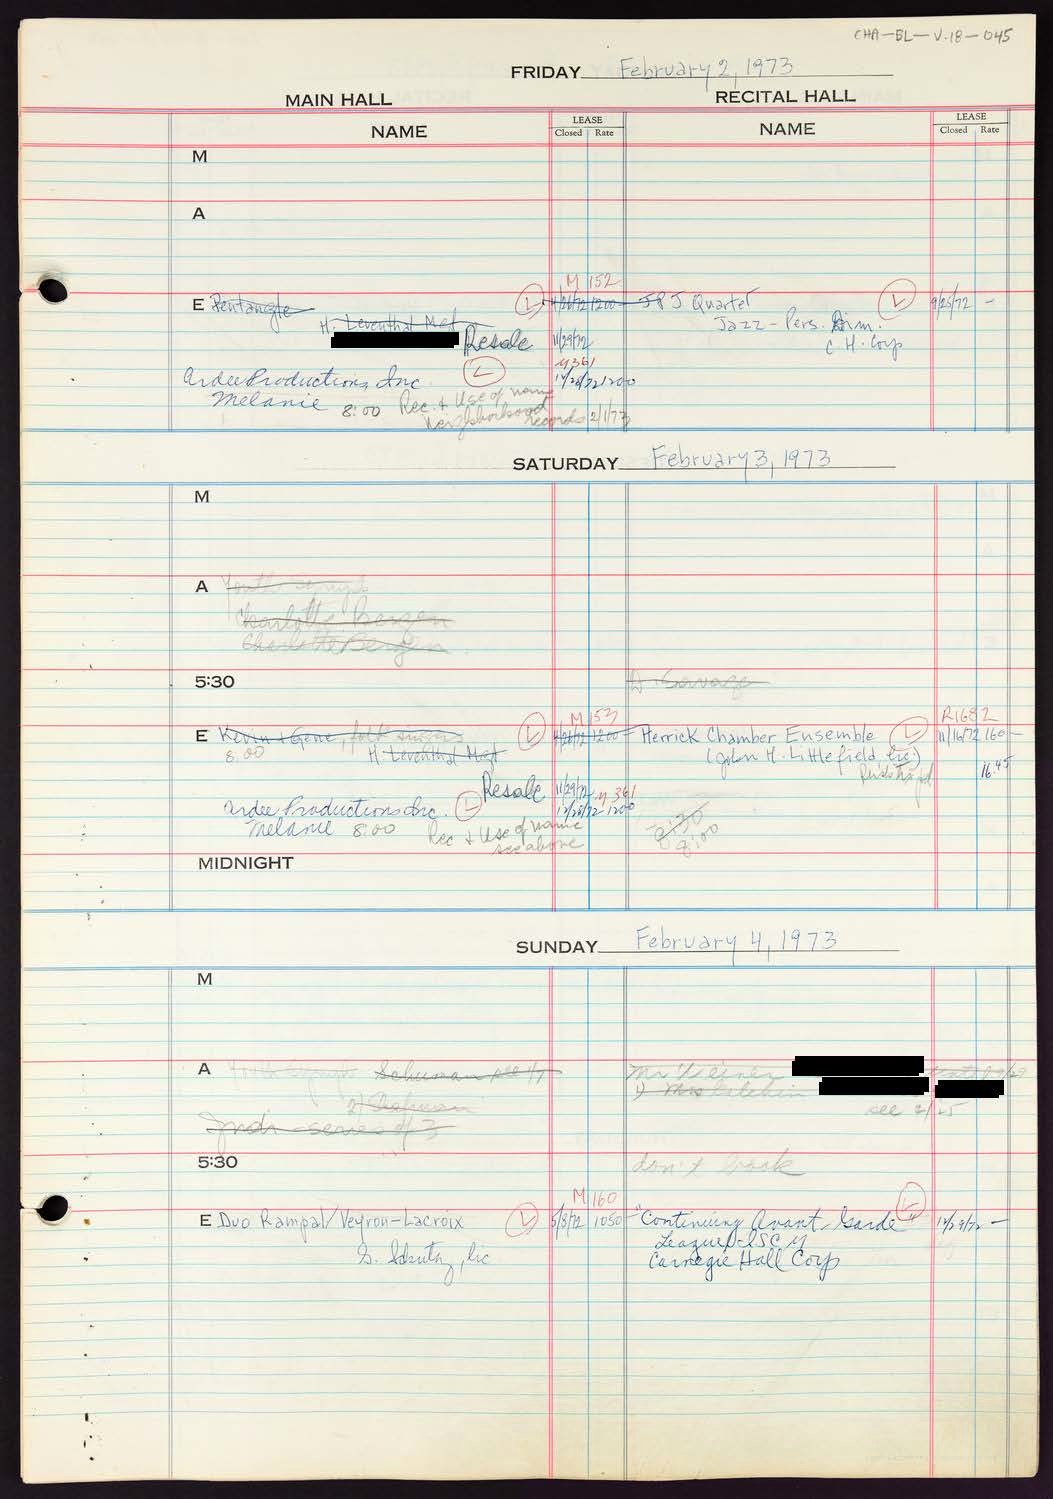 CHA-BL-V.18-045
FRIDAY February 2, 1973
MAIN HALL RECITAL HALL
NAME LEASE Closed Rate NAME LEASE Closed Rate
M
A
M 152
E Pentangle L 4/26/72 1200- JPJ Quartet L 9/25/72 -
H. Leventhal Mgt Jazz - Pers. Dim.
Resale 11/29/72 C. H. Corp
M361
Ardee Productions, Inc. L 12/26/72 1200
Melanie 8:00 Rec. + Use of name
Neighborhood Records 2/1/73
SATURDAY February 3, 1973
M
A Youth Symph
Charlotte Bergen
Charlotte Bergen
5:30 Savage
M 153 R1682
E Kevin + Gene, folk singers L 4/26/72 1200- Herrick Chamber Ensemble L 11/16/72 160-
8:00 H. Leventhal Mgt (John H. Littlefield, lic)
16.45
Resale 11/29/72 M 361
Ardee Productions Inc. L 12/26/72 1200
Melanie 8:00 Rec + Use of name 2:30
see above 8:00
MIDNIGHT
SUNDAY February 4, 1973
M
A Youth Symph Schuman see 1/7 Mr Weiner
2) Chapman 1) Mrs
series of 3 see 2/25
5:30 don't book
M 160
E Duo Rampal/Veyron-Lacroix L 5/8/72 1050- "Continuing Avant-Garde" L -
S. , lic League-ISCM
Carnegie Hall Corp